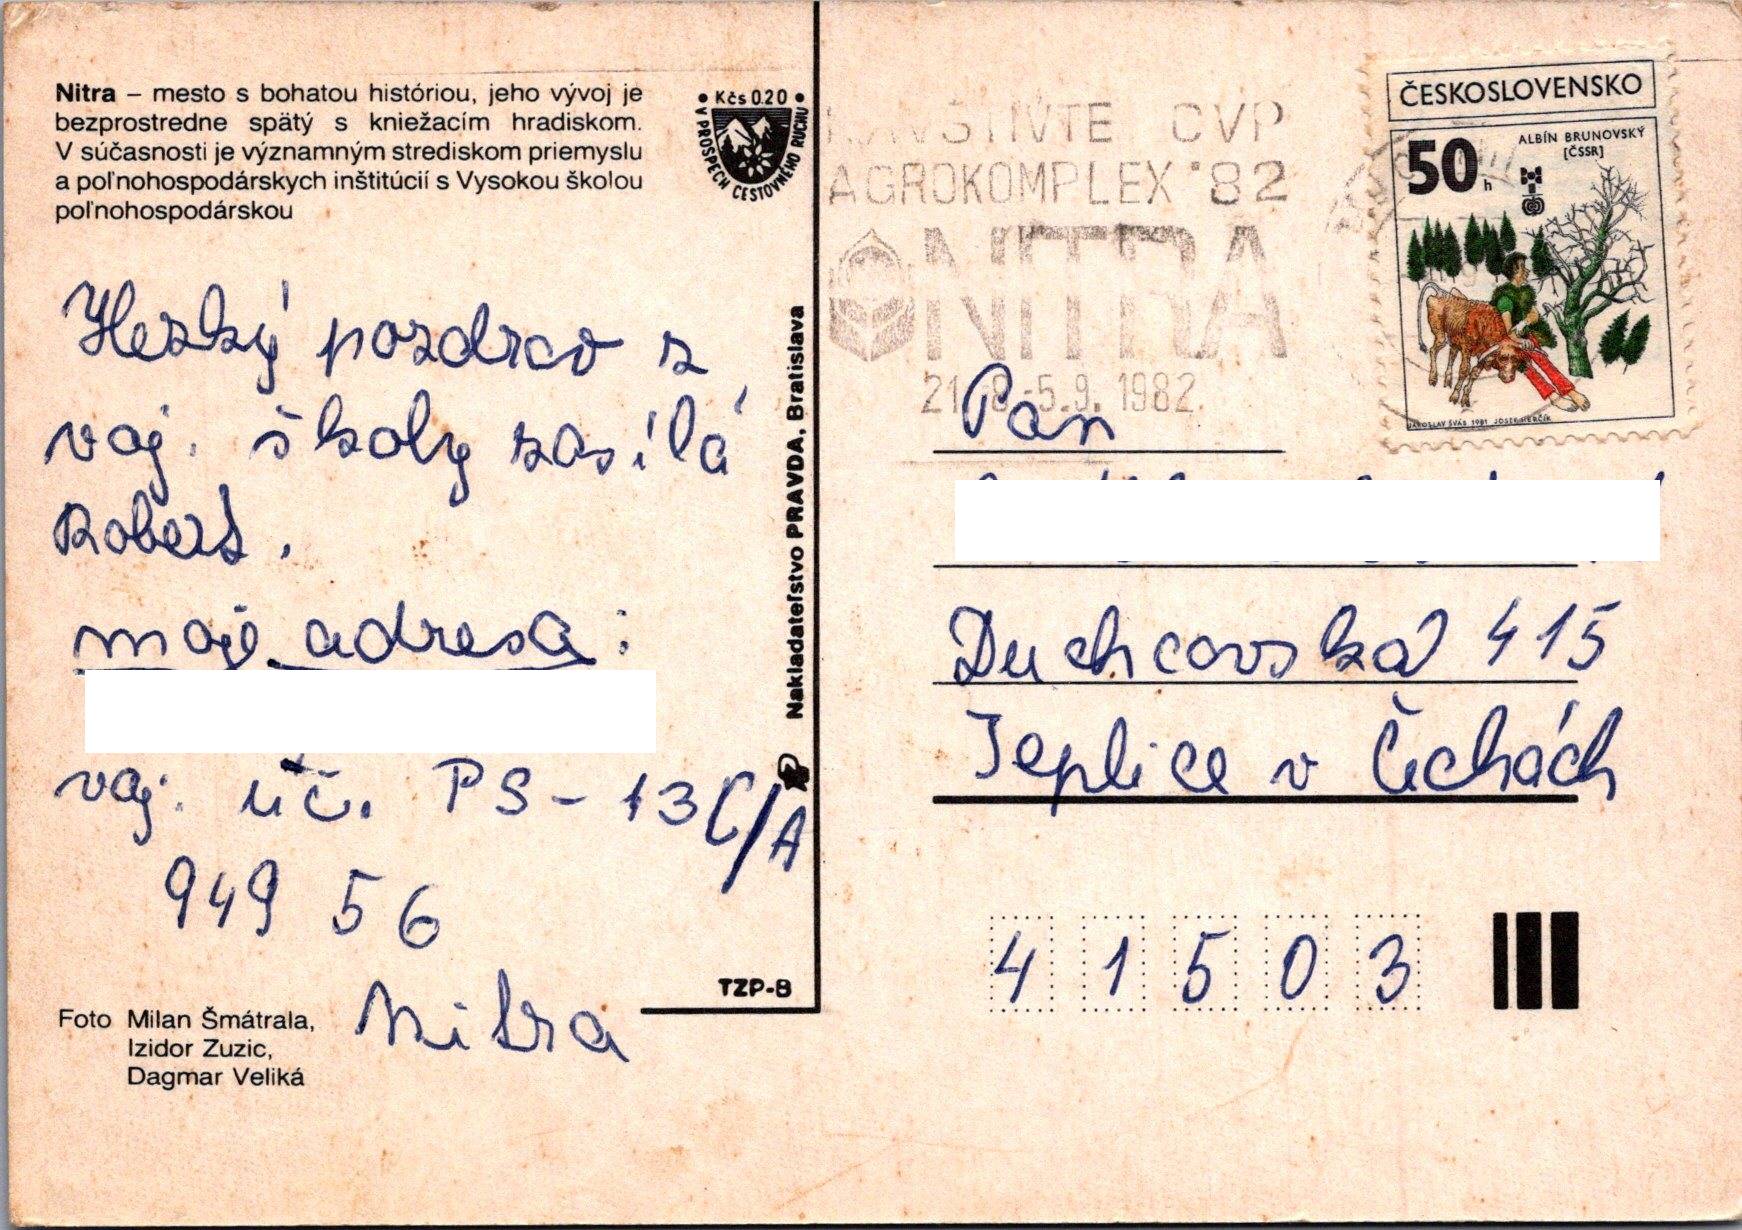 Nitra – mesto s bohatou históriou, jeho vývoj je
bezprostredne spätý s kniežacím hradiskom.
V súčasnosti je významným strediskom priemyslu
a poľnohospodárskych inštitúcií s Vysokou školou
poľnohospodárskou
• Kčs 0.20 •
V PROSPECH CESTOVNÉHO RUCHU
Hezký pozdrav z
voj. školy zasílá
Robert.
moje adresa:
voj. úč. PS - 13 C/A
949 56
Nitra
Foto Milan Šmátrala,
Izidor Zuzic,
Dagmar Veliká
TZP-8
Nakladateľstvo PRAVDA, Bratislava
NAVŠTÍVTE CVP
AGROKOMPLEX '82
NITRA
NITRA
21.8.-5.9. 1982
ČESKOSLOVENSKO
50 h
ALBÍN BRUNOVSKÝ
[ČSSR]
JAROSLAV ŠVÁB 1981 JOSEF HERČÍK
Pan
Duchcovská 415
Teplice v Čechách
41503